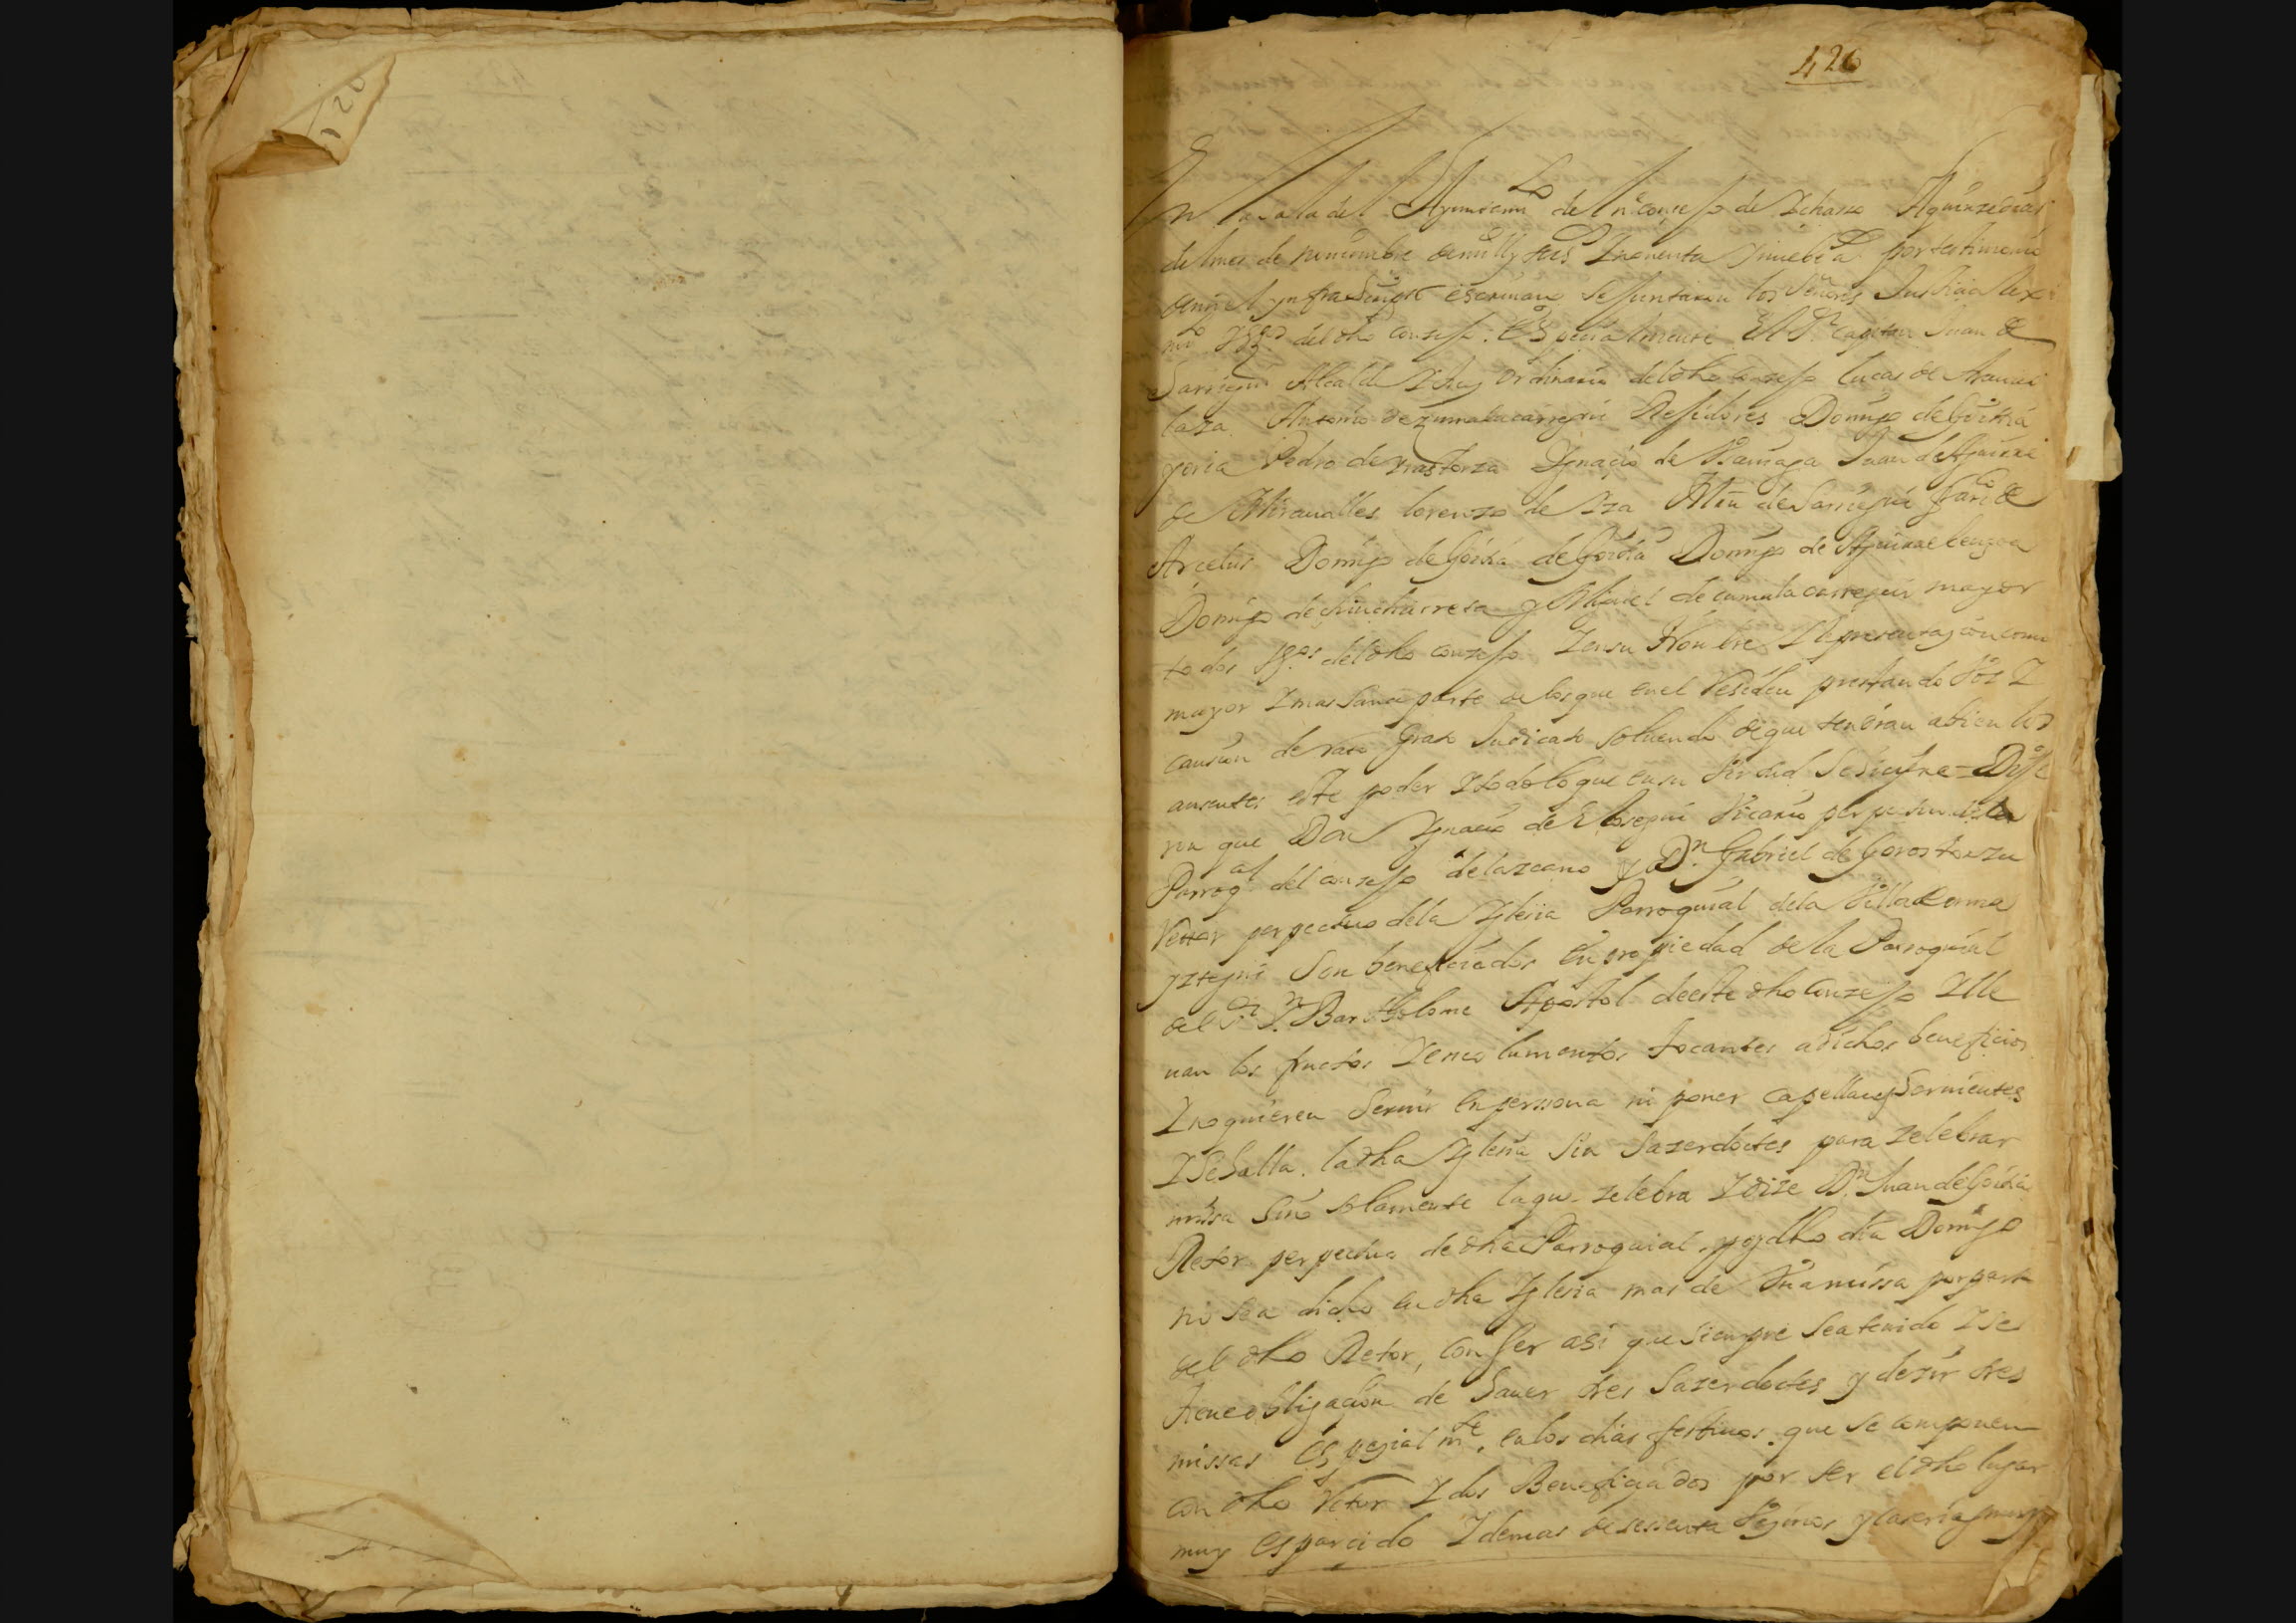 420
En la sala del Ayuntamto del nro consejo de Ichasso A quinze dias
del mes de nouiembre de mill y seis Y nouenta y nuebe a.s por testimonio
de mi el ynfrascripto escriuano se juntaron los Señores Justicia Rex
mto y Vzos del dho consejo: Especialmente El Sr Capitan Juan de
Sarriegui Alcalde y Juez Ordinario del dho consejo Lucas de
laza Antonio de Zumalacarregui Rejidores Domingo de Goitia
yeria Pedro de ynastorza Ygnacio de Juan de Aguirre
de Miraualles lorenzo de Yza Min de Sarriegui franco de
Arcelus Domingo de Goitia de Goitia Domingo de Aguirrebengoa
Domingo de chincharreta y Miguel de cumalacarregui mayor
todos Vzos del dho consejo Y en su Nombre Y Representazion como
mayor Y mas Sana parte de los que en el Residen prestando Voz Y
causion de rato Grato Judicato soluendo de que tendran abien los
ausentes este poder Y todo lo que en su Virtud se hiziere = Dije
ron que Don Ygnacio de Elosegui Vicario perpetuo de la
Parrogal del consejo de lazcano y Dn Gabriel de Gorostorzu
Retor perpectuo dela Yglesia Parroquial dela Villa de orma
yztegui Son beneficiados en propiedad de la Parroquial
del Sr Sn Bartholome Apostol de este dho Conzejo Y lle
uan los fructos Y emolumentos tocantes adichos beneficios
Y no quieren Seruir en perssona ni poner capellanes Seruientes
Y Se halla la dha Yglesia Sin Sazerdoctes para zelebrar
missa Sino solamente la que zelebra Y dize Dn Juan de Goitia
Retor perpectuo de dha Parroquial y oy dho dia Domingo
no sea dicho en dha Yglesia mas de Vna missa por parte
del dho Retor, con ser asi que siempre sea tenido Y se
tiene obligacion de hauer tres Sazerdoctes y dezir tres
missas Espezialmte en los dias festiuos que se componen
con dho Retor Y dos Beneficiados por ser el dho lugar
muy esparcido Y demas de sesenta Vezinos y caserias muy